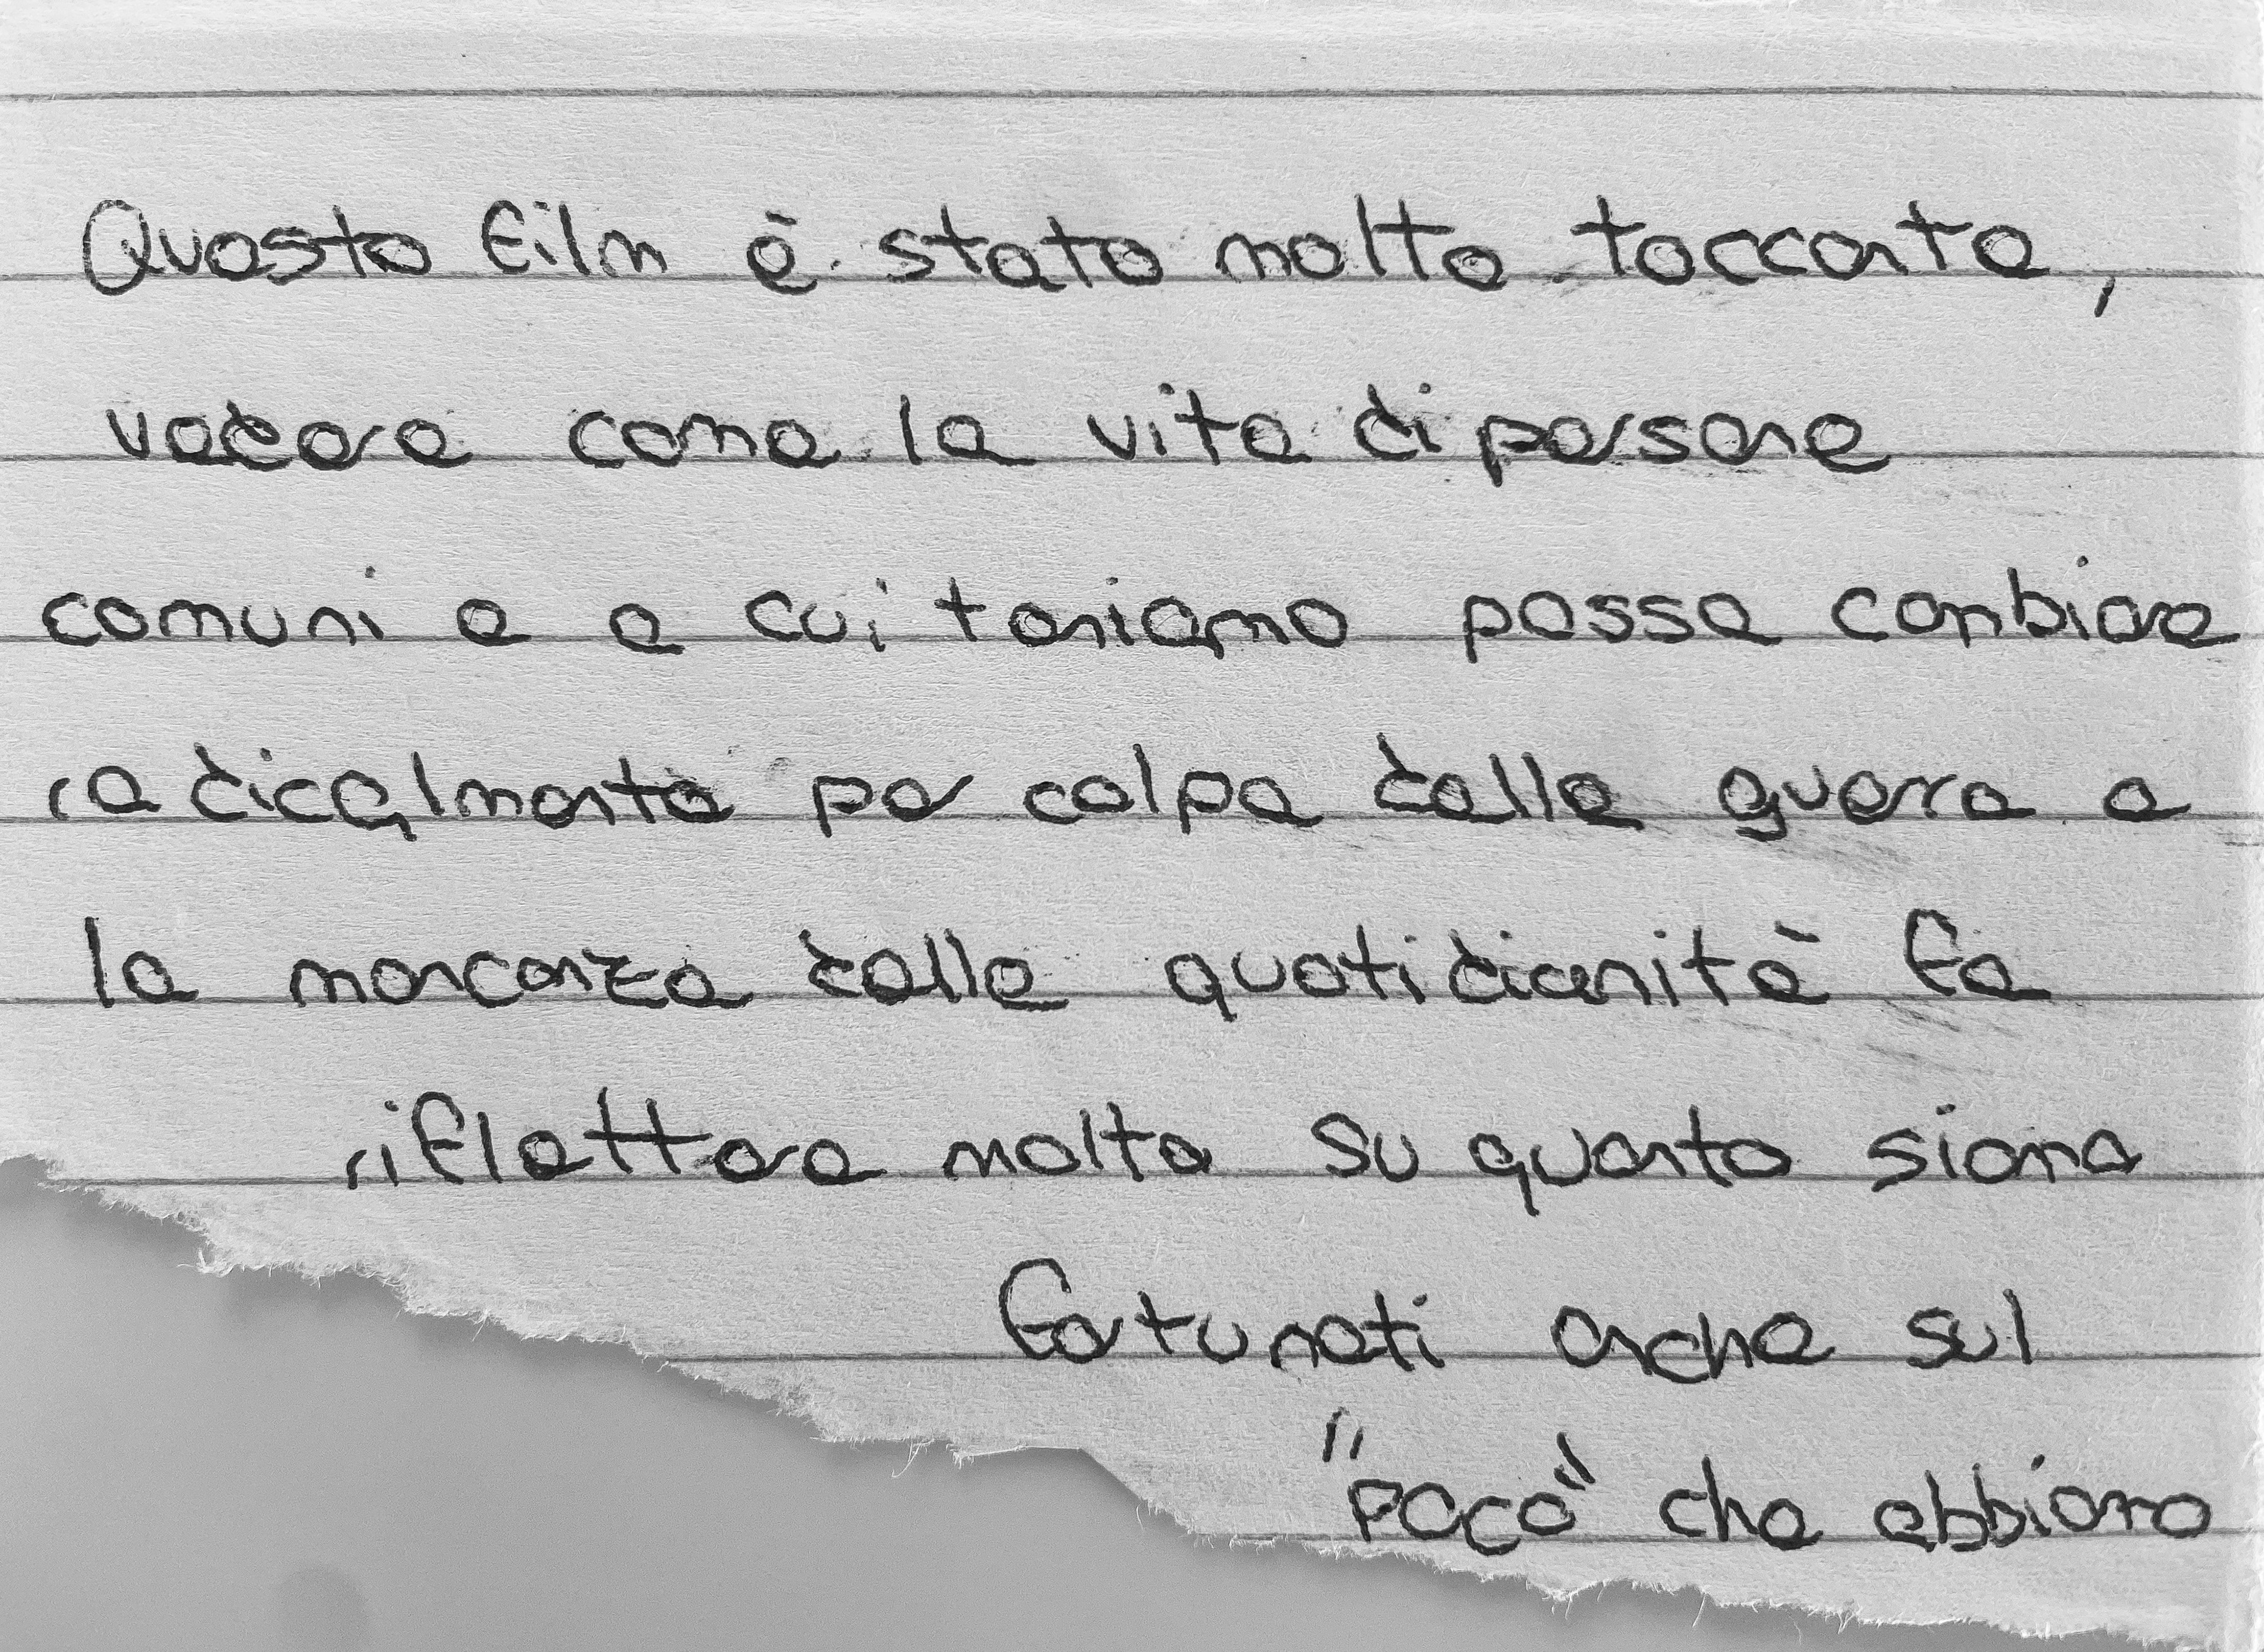 Questo film è stato molto toccante,
vedere come la vita di persone
comuni e a cui teniamo possa cambiare
radicalmente per colpa della guerra e
la mancanza della quotidianità fa
riflettere molto su quanto siamo
fortunati anche sul
"poco" che abbiamo